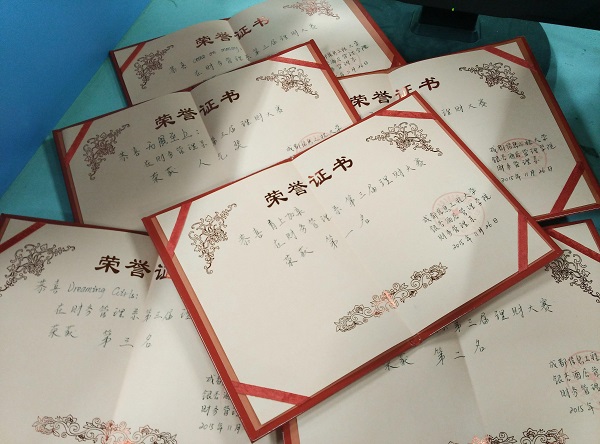 荣誉证书
恭喜
在财务管理系第三届理财大赛
荣誉证书
恭喜
在财务管理系第三届理财大赛
荣获 人气奖
理财大赛
成都信息工程大学
银杏酒店管理学院
财务管理系
2015年11月26日
荣誉证书
恭喜
在财务管理系第三届理财大赛
荣获 第一名
成都信息工程大学
银杏酒店管理学院
财务管理系
2015年11月26日
荣誉证书
恭喜 Dreaming
在财务管理系第三届理
荣获 第三名
成都
银杏酒店
财务管理
2015年11
第三届理财大赛
荣获 第二名
成都信息工程
银杏酒店管
财务管理
2015年